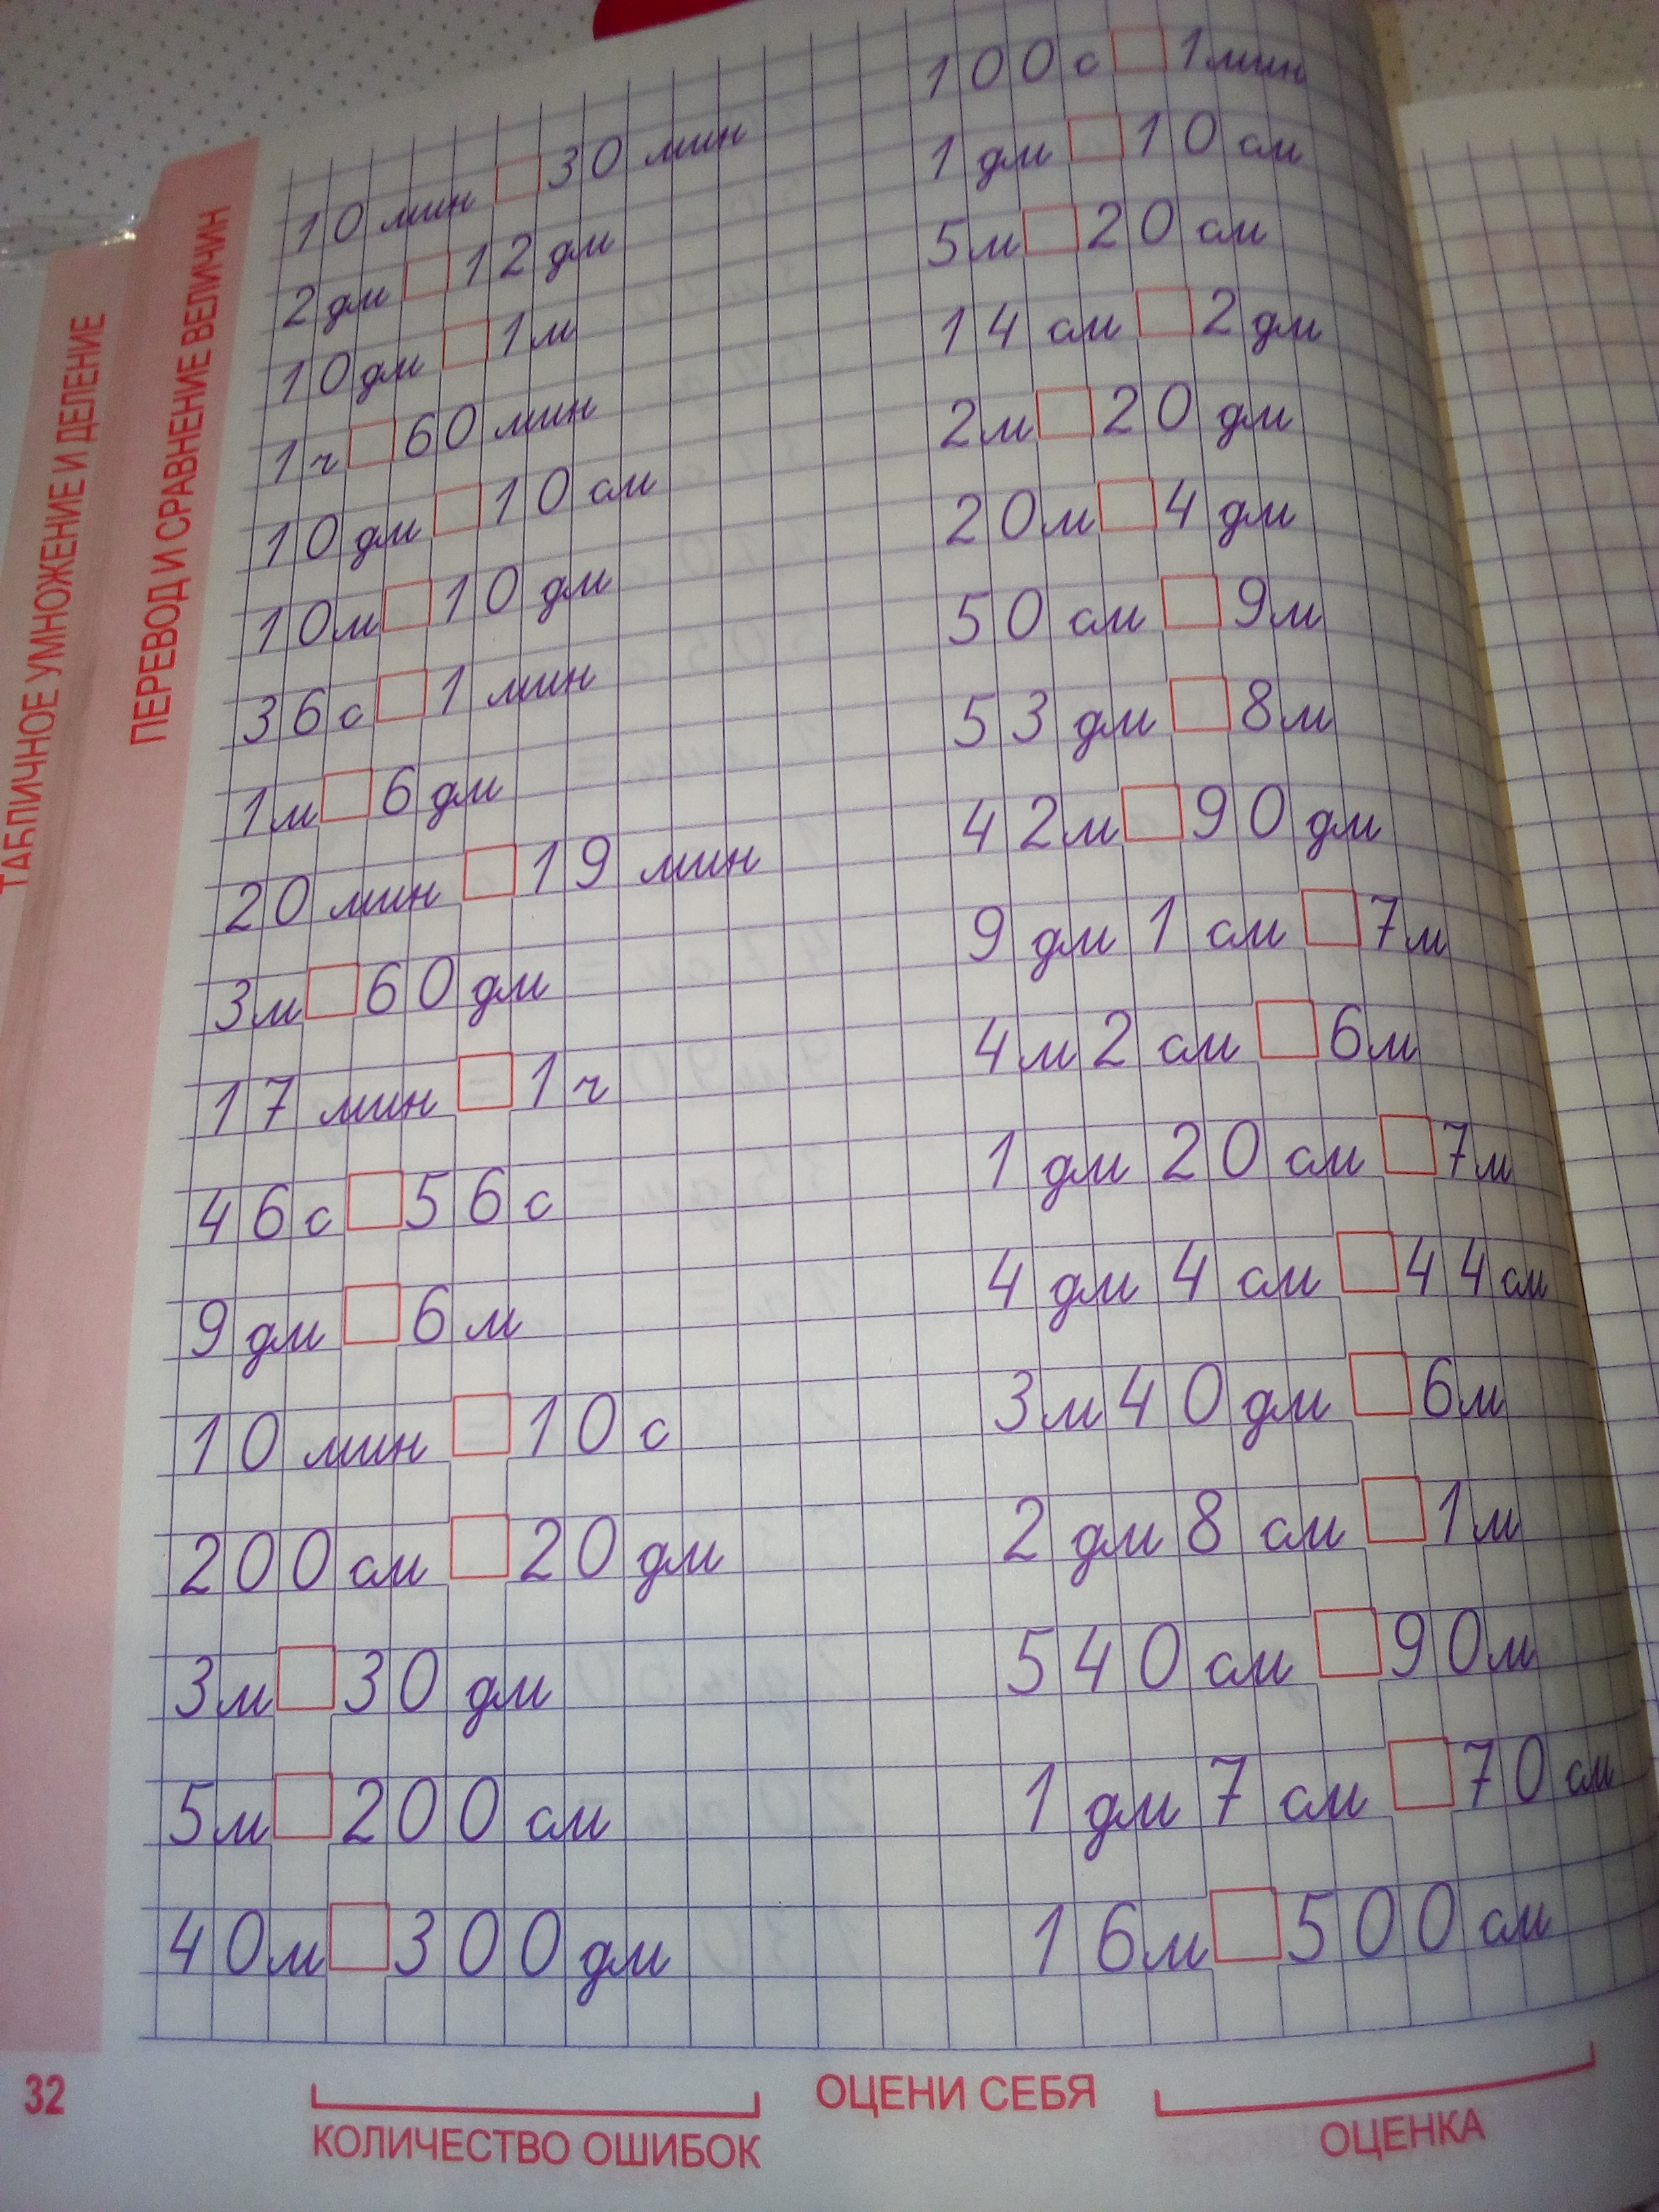 ТАБЛИЧНОЕ УМНОЖЕНИЕ И ДЕЛЕНИЕ
ПЕРЕВОД И СРАВНЕНИЕ ВЕЛИЧИН
10 мин □ 30 мин
2 дм □ 12 дм
10 дм □ 1 м
1 ч □ 60 мин
10 дм □ 10 см
10 м □ 10 дм
36 с □ 1 мин
1 м □ 6 дм
20 мин □ 19 мин
3 м □ 60 дм
17 мин □ 1 ч
46 с □ 56 с
9 дм □ 6 м
10 мин □ 10 с
200 см □ 20 дм
3 м □ 30 дм
5 м □ 200 см
40 м □ 300 дм
100 с □ 1 мин
1 дм □ 10 см
5 м □ 20 см
14 см □ 2 дм
2 м □ 20 дм
20 м □ 4 дм
50 см □ 9 м
53 дм □ 8 м
42 м □ 90 дм
9 дм 1 см □ 7 м
4 м 2 см □ 6 м
1 дм 20 см □ 7 м
4 дм 4 см □ 44 см
3 м 40 дм □ 6 м
2 дм 8 см □ 1 м
540 см □ 90 м
1 дм 7 см □ 70 см
16 м □ 500 см
32
КОЛИЧЕСТВО ОШИБОК
ОЦЕНИ СЕБЯ
ОЦЕНКА